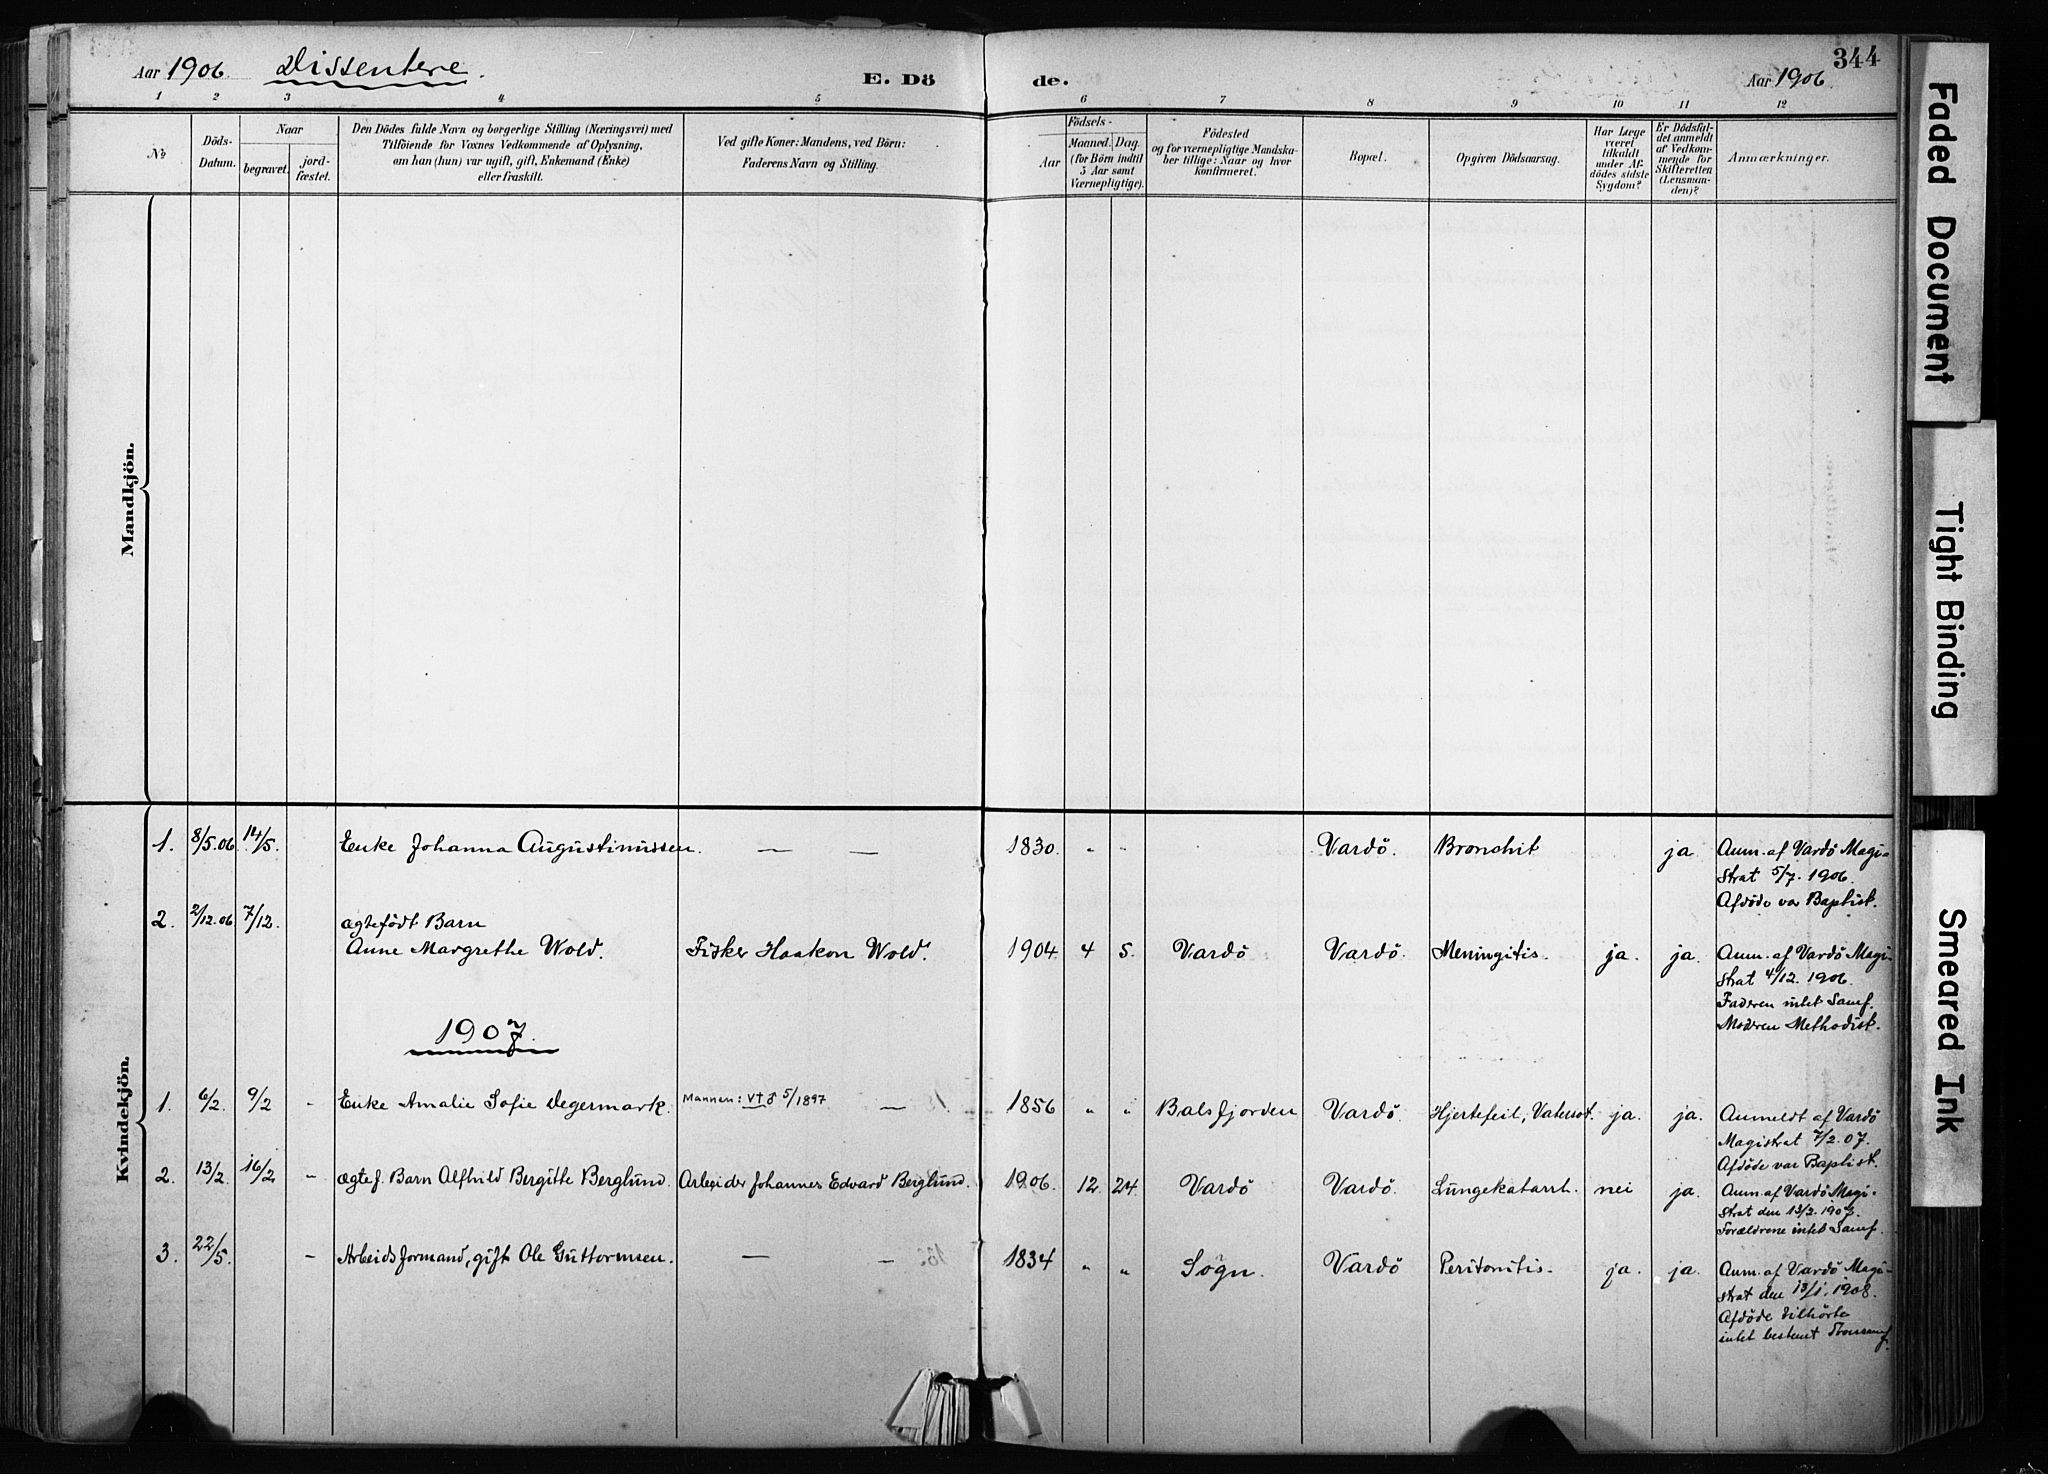 Aar 1906. Dissentere. E. Dö de. Aar 1906. 344
1 2 3 4 5 6 7 8 9 10 11 12
№
Döds-
Datum.
Naar
begravet.
jord-
fæstet.
Den Dödes fulde Navn og borgerlige Stilling (Næringsvei) med
Tilföiende for Voxnes Vedkommende af Oplysning,
om han (hun) var ugift, gift, Enkemand (Enke)
eller fraskilt.
Ved gifte Koner: Mandens, ved Börn:
Faderens Navn og Stilling.
Födsels-
Aar
Maaned. Dag.
(for Börn indtil
5 Aar samt
Værnepligtige).
Födested
og for værnepligtige Mandska-
ber tillige: Naar og hvor
konfirmeret.
Bopæl.
Opgiven Dödsaarsag.
Har Læge
været
tilkaldt
under Af-
dödes sidste
Sygdom?
Er Dödsfal-
det anmeldt
af Vedkom-
mende for
Skifteretten
(Lensman-
den)?
Anmærkninger.
Mandkjön.
Kvindekjön.
1. 8/5.06 14/5. Enke Johanna Augustinussen. — — 1830. " " Vardö. Bronchit ja Anm. af Vardö Magi-
strat 5/7. 1906.
Afdöde var Baptist.
2. 2/12.06 7/12. ægtefödt Barn
Anne Margrethe Wold. Fisker Haakon Wold. 1904 4 5. Vardö Vardö. Meningitis. ja. ja. Anm. af Vardö Magi-
strat 4/12. 1906.
Faderen intet Samf.
Moderen Methodist.
1907.
1. 6/2. 9/2 - Enke Amalie Sofie Degermark. Mannen: V† 5/1897 — 1856 " " Balsfjorden Vardö. Hjertefeil, Vatersot. ja. ja. Anmeldt af Vardö
Magistrat 7/2.07.
Afdöde var Baptist.
2. 13/2. 16/2 - ægtef. Barn Alfhild Bergitte Berglund. Arbeider Johannes Edvard Berglund. 1906. 12. 24. Vardö Vardö. Lungekatarrh. nei ja. Anm. af Vardö Magi-
strat den 13/2. 1907.
Forældrene intet Samf.
3. 22/5. - Arbeidsformand, gift Ole Guttormsen. — - 1834 " " Sogn. Vardö Peritonitis. ja. ja. Anm. af Vardö Magi-
strat den 13/1. 1908.
Afdöde tilhörte
intet bestemt Trossamf.
Faded Document
Tight Binding
Smeared Ink